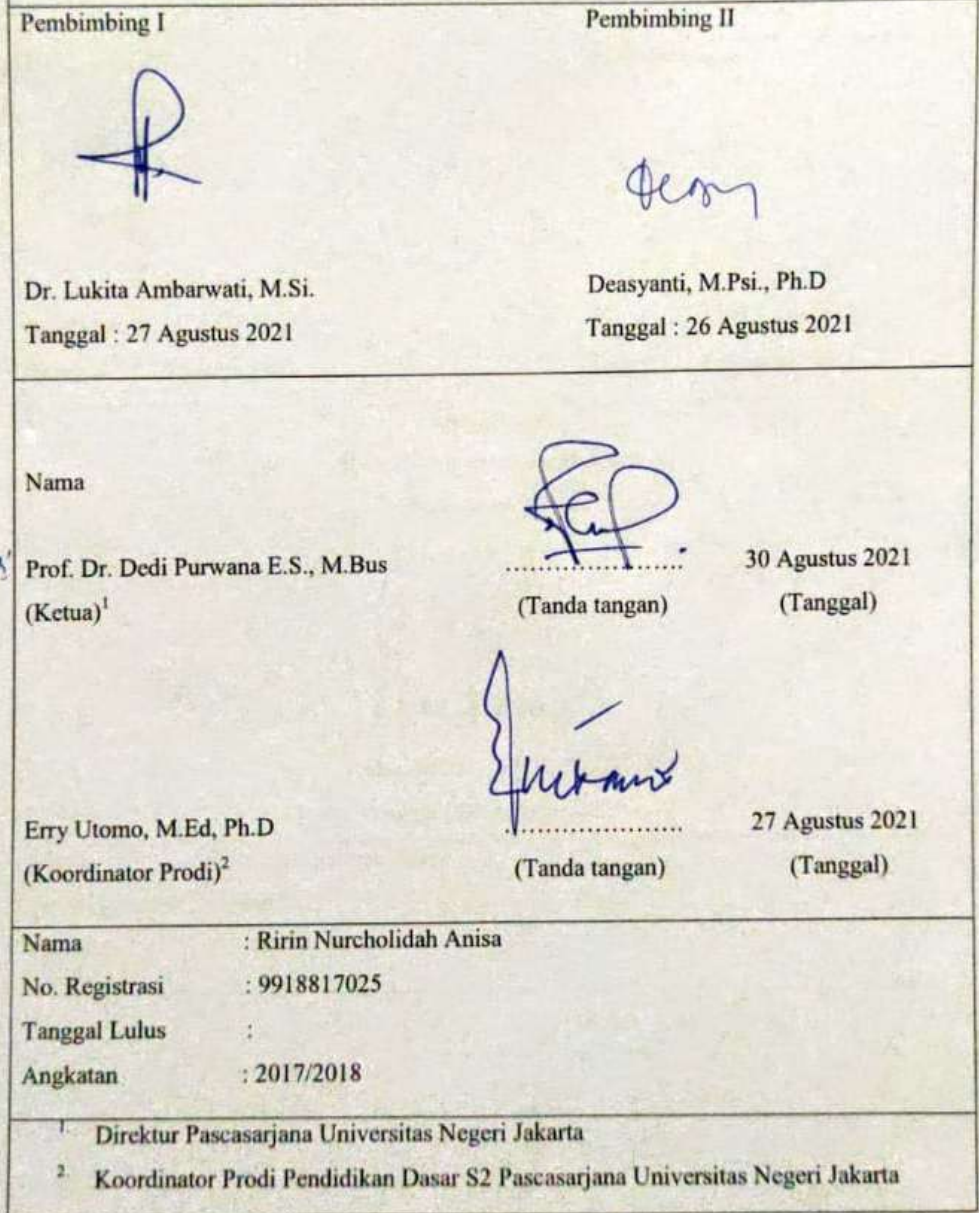 Pembimbing I
Pembimbing II
Dr. Lukita Ambarwati, M.Si.
Tanggal : 27 Agustus 2021
Deasyanti, M.Psi., Ph.D
Tanggal : 26 Agustus 2021
Nama
Prof. Dr. Dedi Purwana E.S., M.Bus
(Ketua)¹
....................
(Tanda tangan)
30 Agustus 2021
(Tanggal)
Erry Utomo, M.Ed, Ph.D
(Koordinator Prodi)²
....................
(Tanda tangan)
27 Agustus 2021
(Tanggal)
Nama : Ririn Nurcholidah Anisa
No. Registrasi : 9918817025
Tanggal Lulus :
Angkatan : 2017/2018
1. Direktur Pascasarjana Universitas Negeri Jakarta
2. Koordinator Prodi Pendidikan Dasar S2 Pascasarjana Universitas Negeri Jakarta